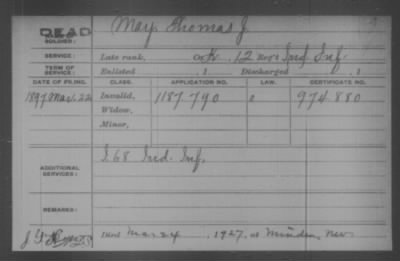 DEAD
SOLDIER: May Thomas J.
SERVICE: Late rank, Co K, 12 Reg't Ind Inf
TERM OF SERVICE: Enlisted , 1 Discharged , 1
DATE OF FILING. CLASS. APPLICATION NO. LAW. CERTIFICATE NO.
1897 Mar. 22 Invalid, 1187.790 974.880
Widow,
Minor,
ADDITIONAL SERVICES: I. 68 Ind. Inf.
REMARKS:
Died Mar 24, 1927, at Minden, Nev